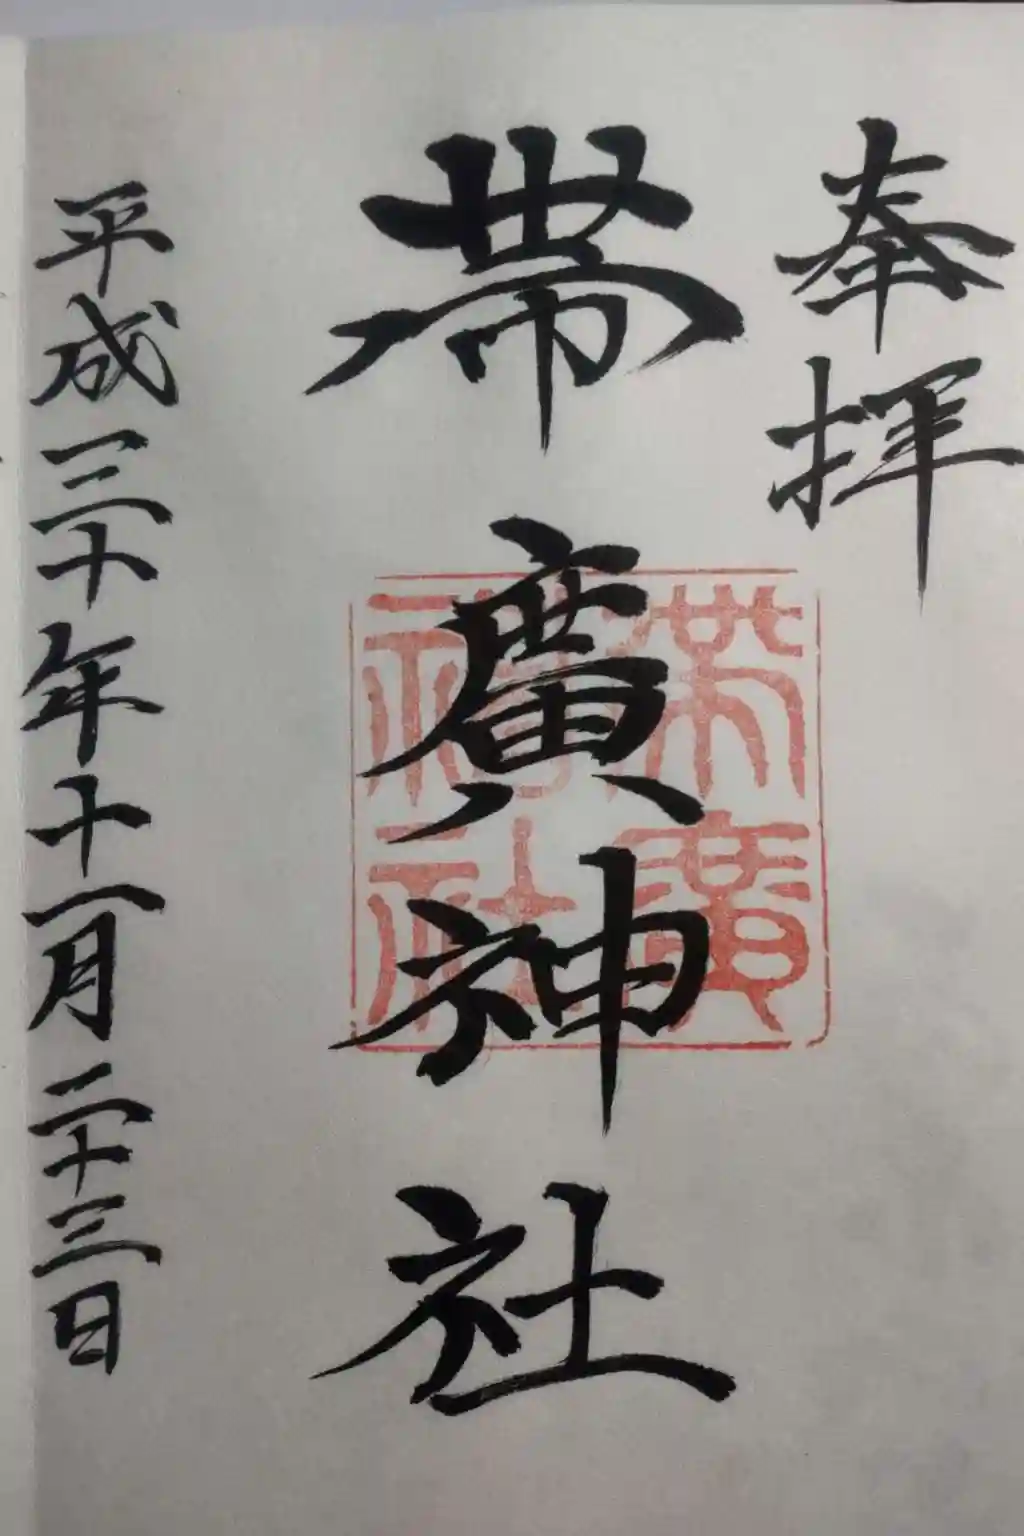 奉拝
帯廣神社
帯廣
神社
平成三十年十一月二十三日